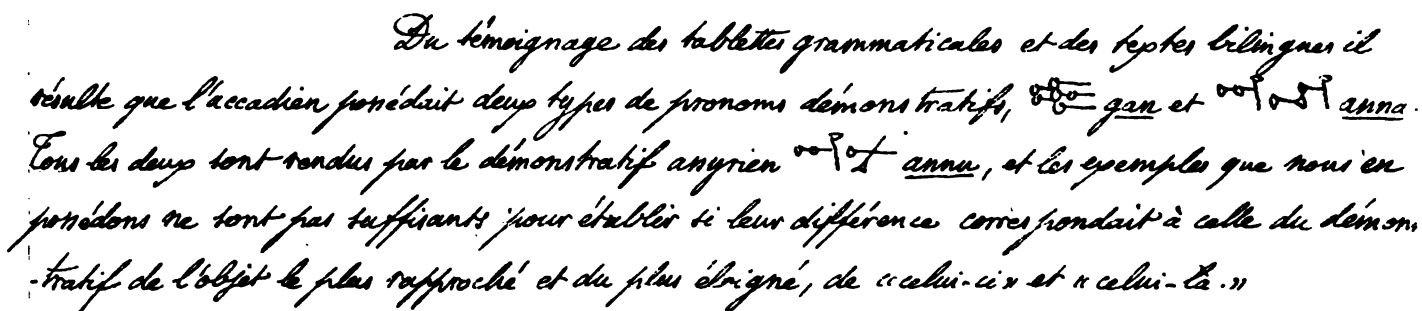 Du témoignage des tablettes grammaticales et des textes bilingues il
résulte que l'accadien possédait deux types de pronoms démonstratifs, gan et anna.
Tous les deux sont rendus par le démonstratif assyrien annu, et les exemples que nous en
possédons ne sont pas suffisants pour établir si leur différence correspondait à celle du démons
-tratif de l'objet le plus rapproché et du plus éloigné, de «celui-ci» et «celui-là.»